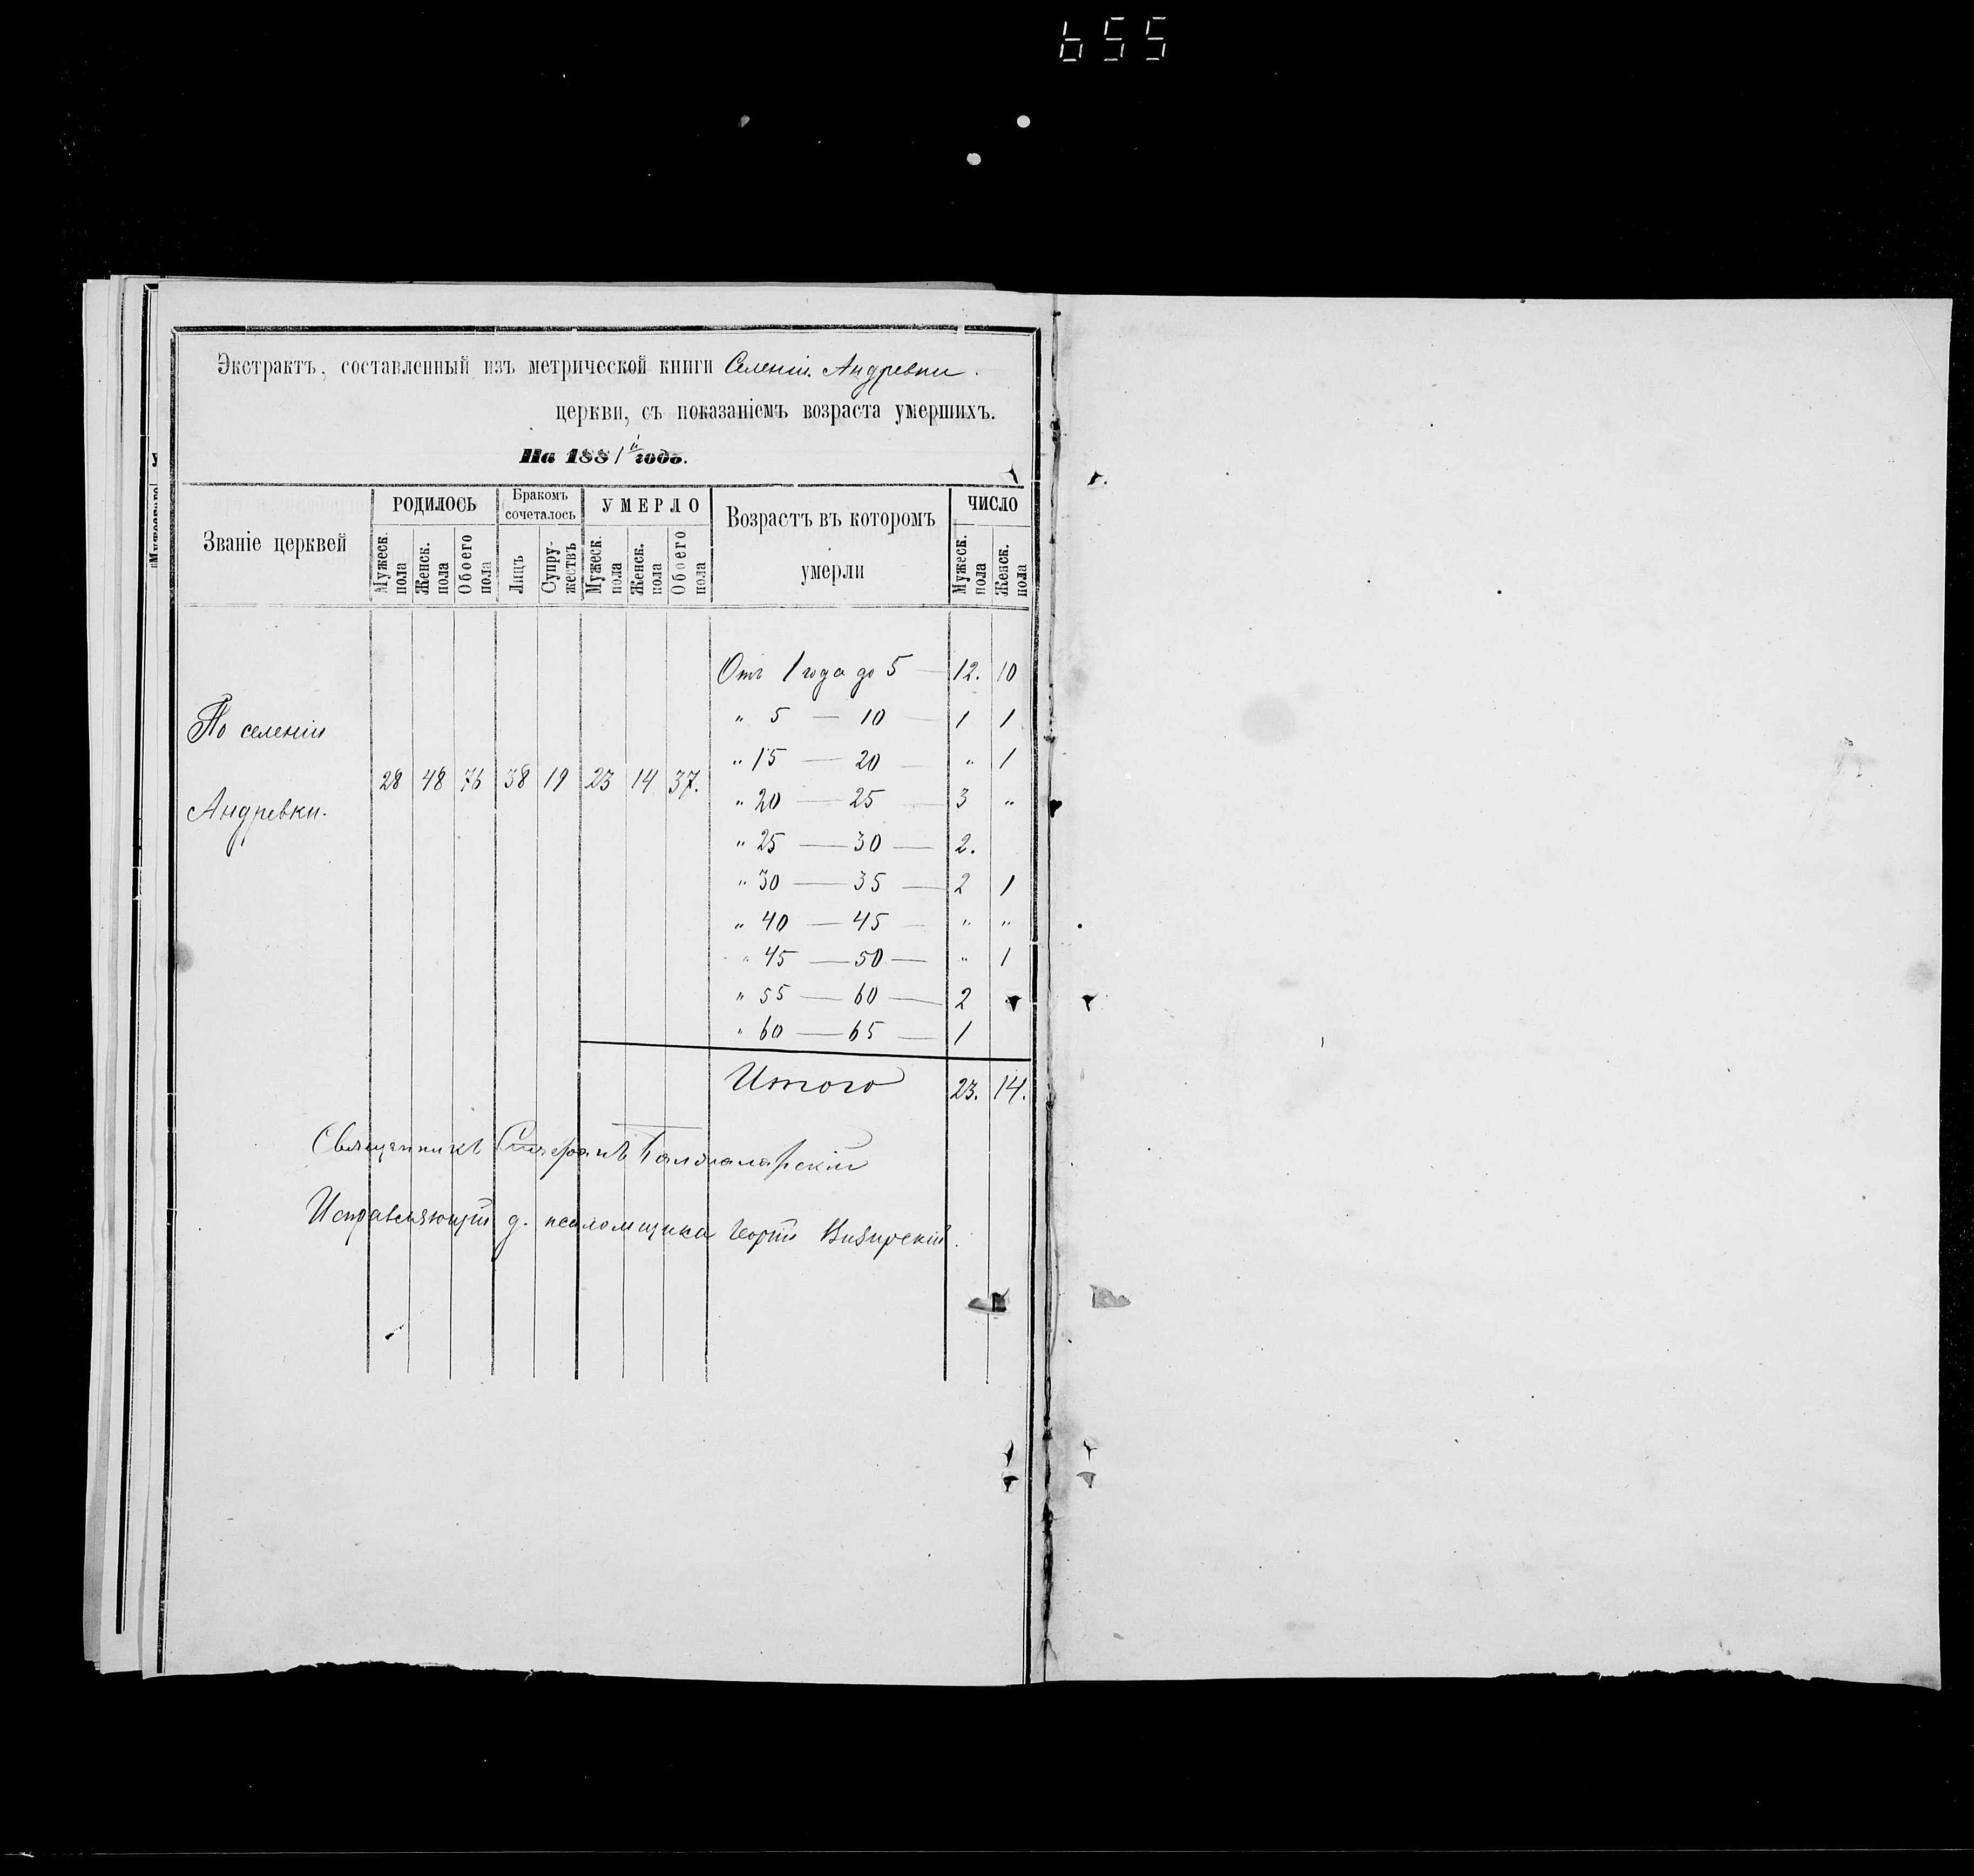 655
Экстрактъ, составленный изъ метрической книги Селенiи Андревки.
церкви, съ показанiемъ возраста умершихъ.
На 1881й годъ.
Званiе церквей
РОДИЛОСЬ
Мужеск. пола
Женск. пола
Обоего пола
Бракомъ сочеталось
Лицъ
Супружествъ
УМЕРЛО
Мужеск. пола
Женск. пола
Обоего пола
Возрастъ въ которомъ
умерли
ЧИСЛО
Мужеск. пола
Женск. пола
По селенiи
Андревки.
28 48 76 38 19 23 14 37.
Отъ 1 года до 5 — 12. 10
" 5 — 10 — 1 1
" 15 — 20 — " 1
" 20 — 25 — 3 "
" 25 — 30 — 2.
" 30 — 35 — 2 1
" 40 — 45 — " "
" 45 — 50 — " 1
" 55 — 60 — 2
" 60 — 65 — 1
Итого 23. 14.
Священникъ
Исправляющiй д. псаломщика Георгiй